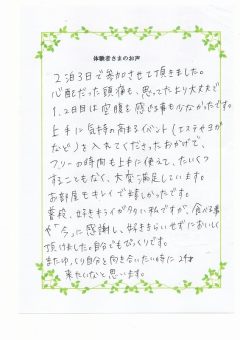 体験者さまのお声
2泊3日で参加させて頂きました。
心配だった頭痛も、思ってたより大丈夫で
1、2日目は空腹を感じる事も少なかったです。
上手に気持の高まるイベント(エステやヨガ
など)を入れてくださったおかげで、
フリーの時間も上手に使えて、たいくつ
することもなく、大変満足しています。
お部屋もキレイで嬉しかったです。
普段、好きキライが多い私ですが、食べる事
や「今」に感謝し、好ききらいせずにおいしく
頂けました。自分でもびっくりです。
またゆっくり自分と向き合いたい時に
来たいなと思います。